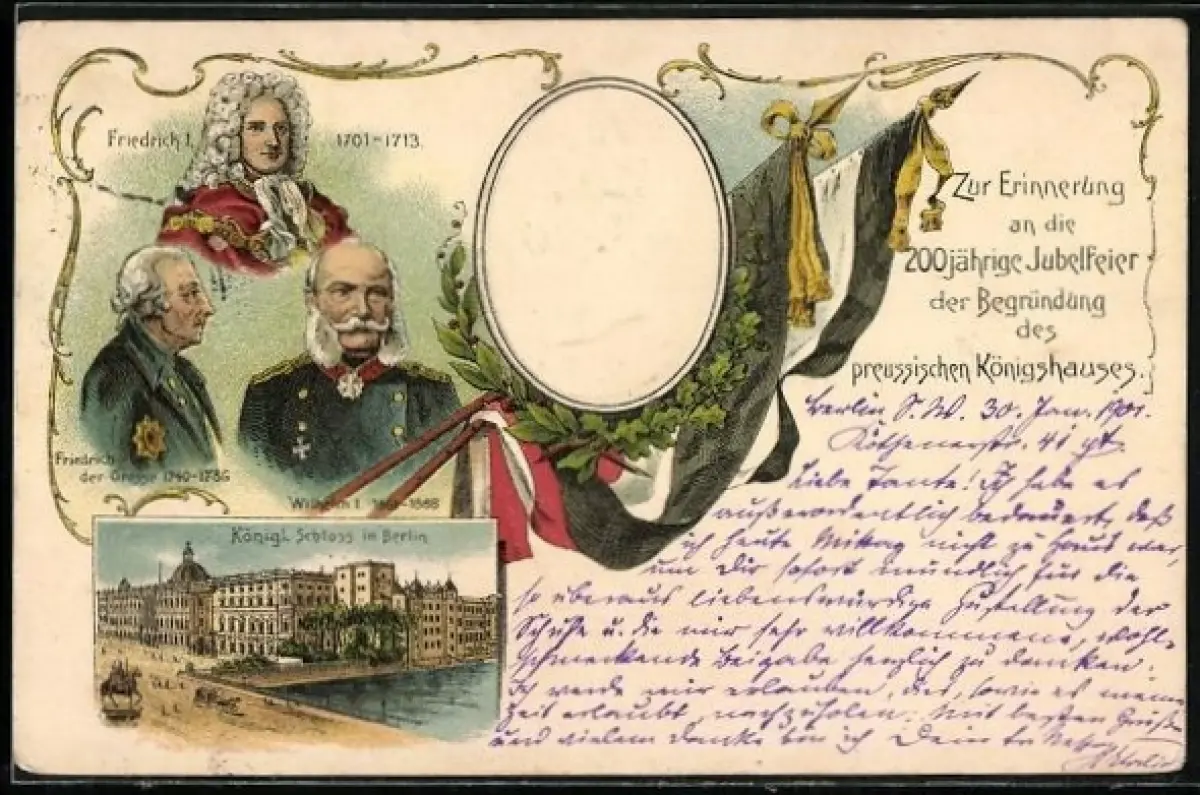 Friedrich I.
1701-1713.
Friedrich
der Grosse 1740-1786
Wilhelm I. -1888
Königl. Schloss in Berlin
Zur Erinnerung
an die
200jährige Jubelfeier
der Begründung
des
preussischen Königshauses.
Berlin S.W. 30. Jan. 1901.
Köthenerstr. 41
Liebe Tante! Ich habe es
außerordentlich bedauert, daß
ich heute Mittag nicht zu Haus war,
um Dir sofort mündlich für die
so überaus liebenswürdige Zustellung der
Schuhe u. die mir sehr willkommene, wohl-
schmeckende Beigabe herzlich zu danken.
Ich werde mir erlauben, dies, sowie es meine
Zeit erlaubt, nachzuholen. Mit besten Grüßen
und vielem Danke bin ich Dein tr. Neffe